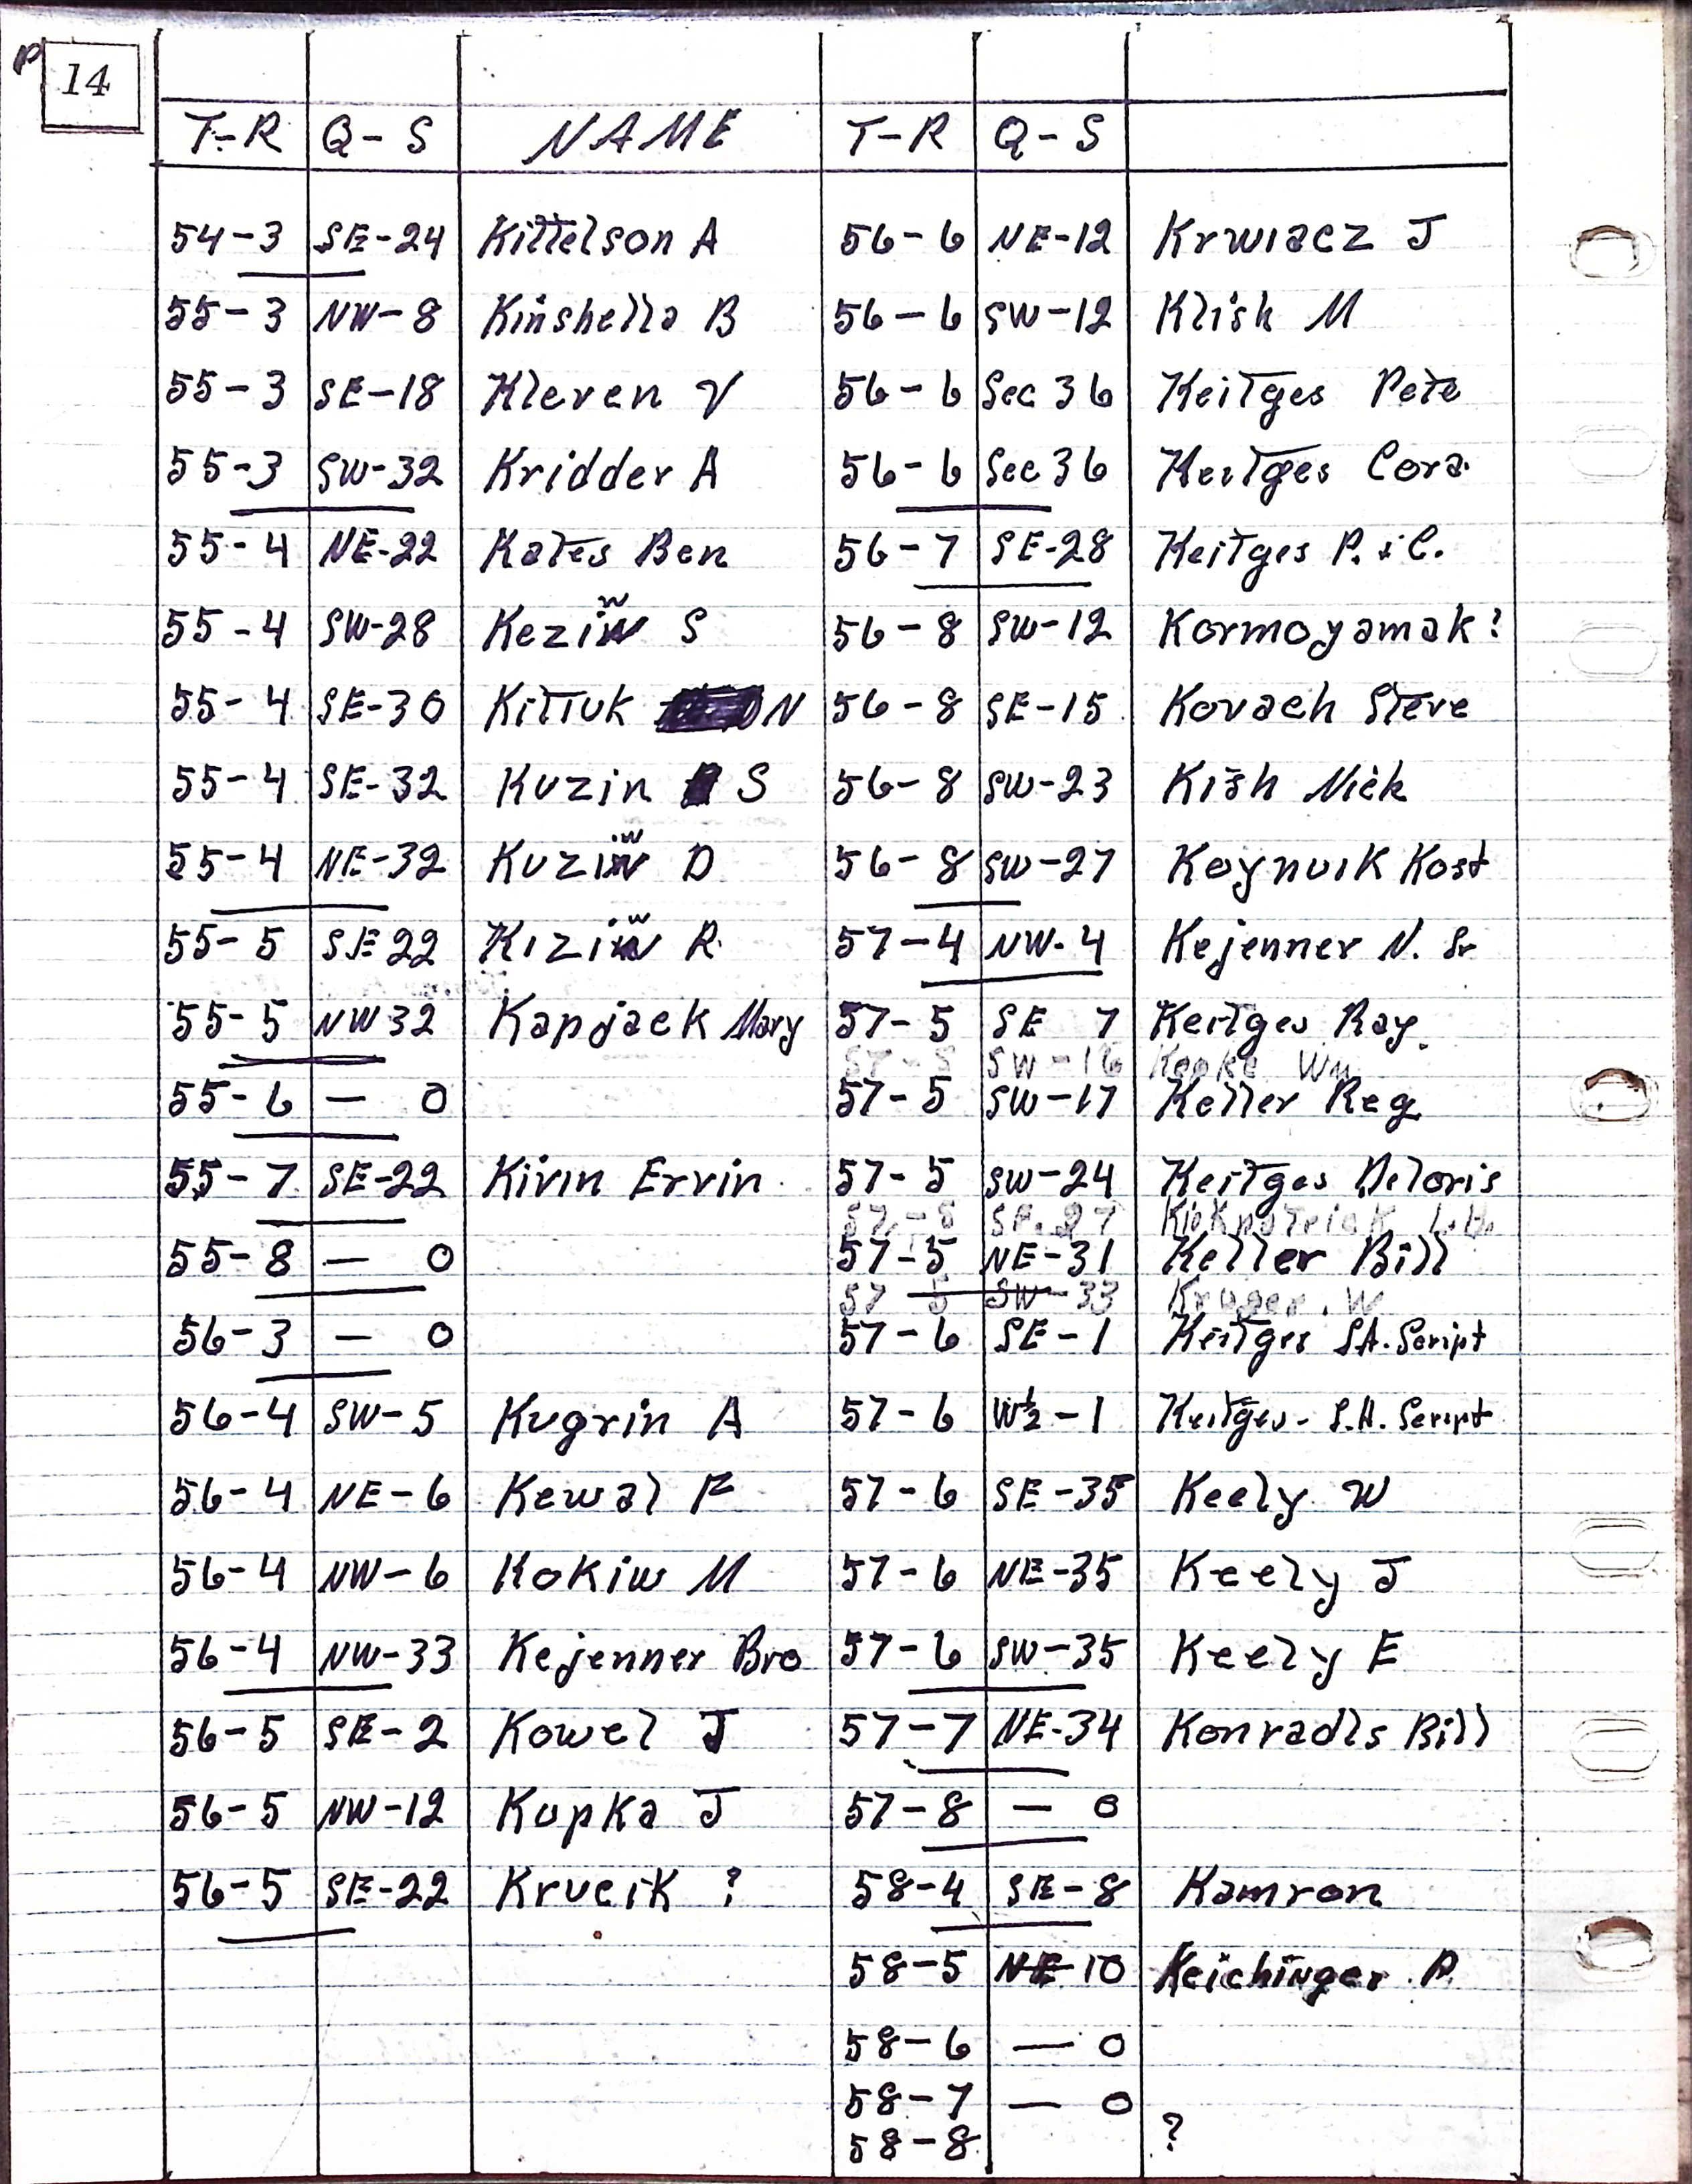 P 14
T-R Q-S NAME T-R Q-S
54-3 SE-24 Kittelson A 56-6 NE-12 Krwiacz J
55-3 NW-8 Kinshella B 56-6 SW-12 Klish M
55-3 SE-18 Kleven V 56-6 Sec 36 Keitges Pete
55-3 SW-32 Kridder A 56-6 Sec 36 Keitges Cora
55-4 NE-22 Kates Ben 56-7 SE-28 Keitges P. & C.
55-4 SW-28 Keziw S 56-8 SW-12 Kormoyamak?
55-4 SE-30 Kittuk N 56-8 SE-15 Kovach Steve
55-4 SE-32 Kuzin S 56-8 SW-23 Kish Nick
55-4 NE-32 Kuziw D 56-8 SW-27 Koynuik Kost
55-5 SE 22 Kiziw R. 57-4 NW-4 Kejenner N. Sr
55-5 NW 32 Kapjack Mary 57-5 SE 7 Keitges Ray.
57-5 SW-16 Wm
55-6 — 0 57-5 SW-17 Keller Reg
55-7 SE-22 Kivin Ervin 57-5 SW-24 Keitges Deloris
57-5 SE-27
55-8 — 0 57-5 NE-31 Keller Bill
57-5 SW-33 Kruger W
56-3 — 0 57-6 SE-1 Keitges S.A. Script
56-4 SW-5 Kugrin A 57-6 W½-1 Keitges - S.A. Script
56-4 NE-6 Kewal F 57-6 SE-35 Keely W
56-4 NW-6 Kokiw M 57-6 NE-35 Keely J
56-4 NW-33 Kejenner Bro 57-6 SW-35 Keely E
56-5 SE-2 Kowel J 57-7 NE-34 Konradls Bill
56-5 NW-12 Kupka J 57-8 — 0
56-5 SE-22 Krucik ? 58-4 SE-8 Kamron
58-5 NE 10 Keichinger P.
58-6 — 0
58-7 — 0
58-8 ?